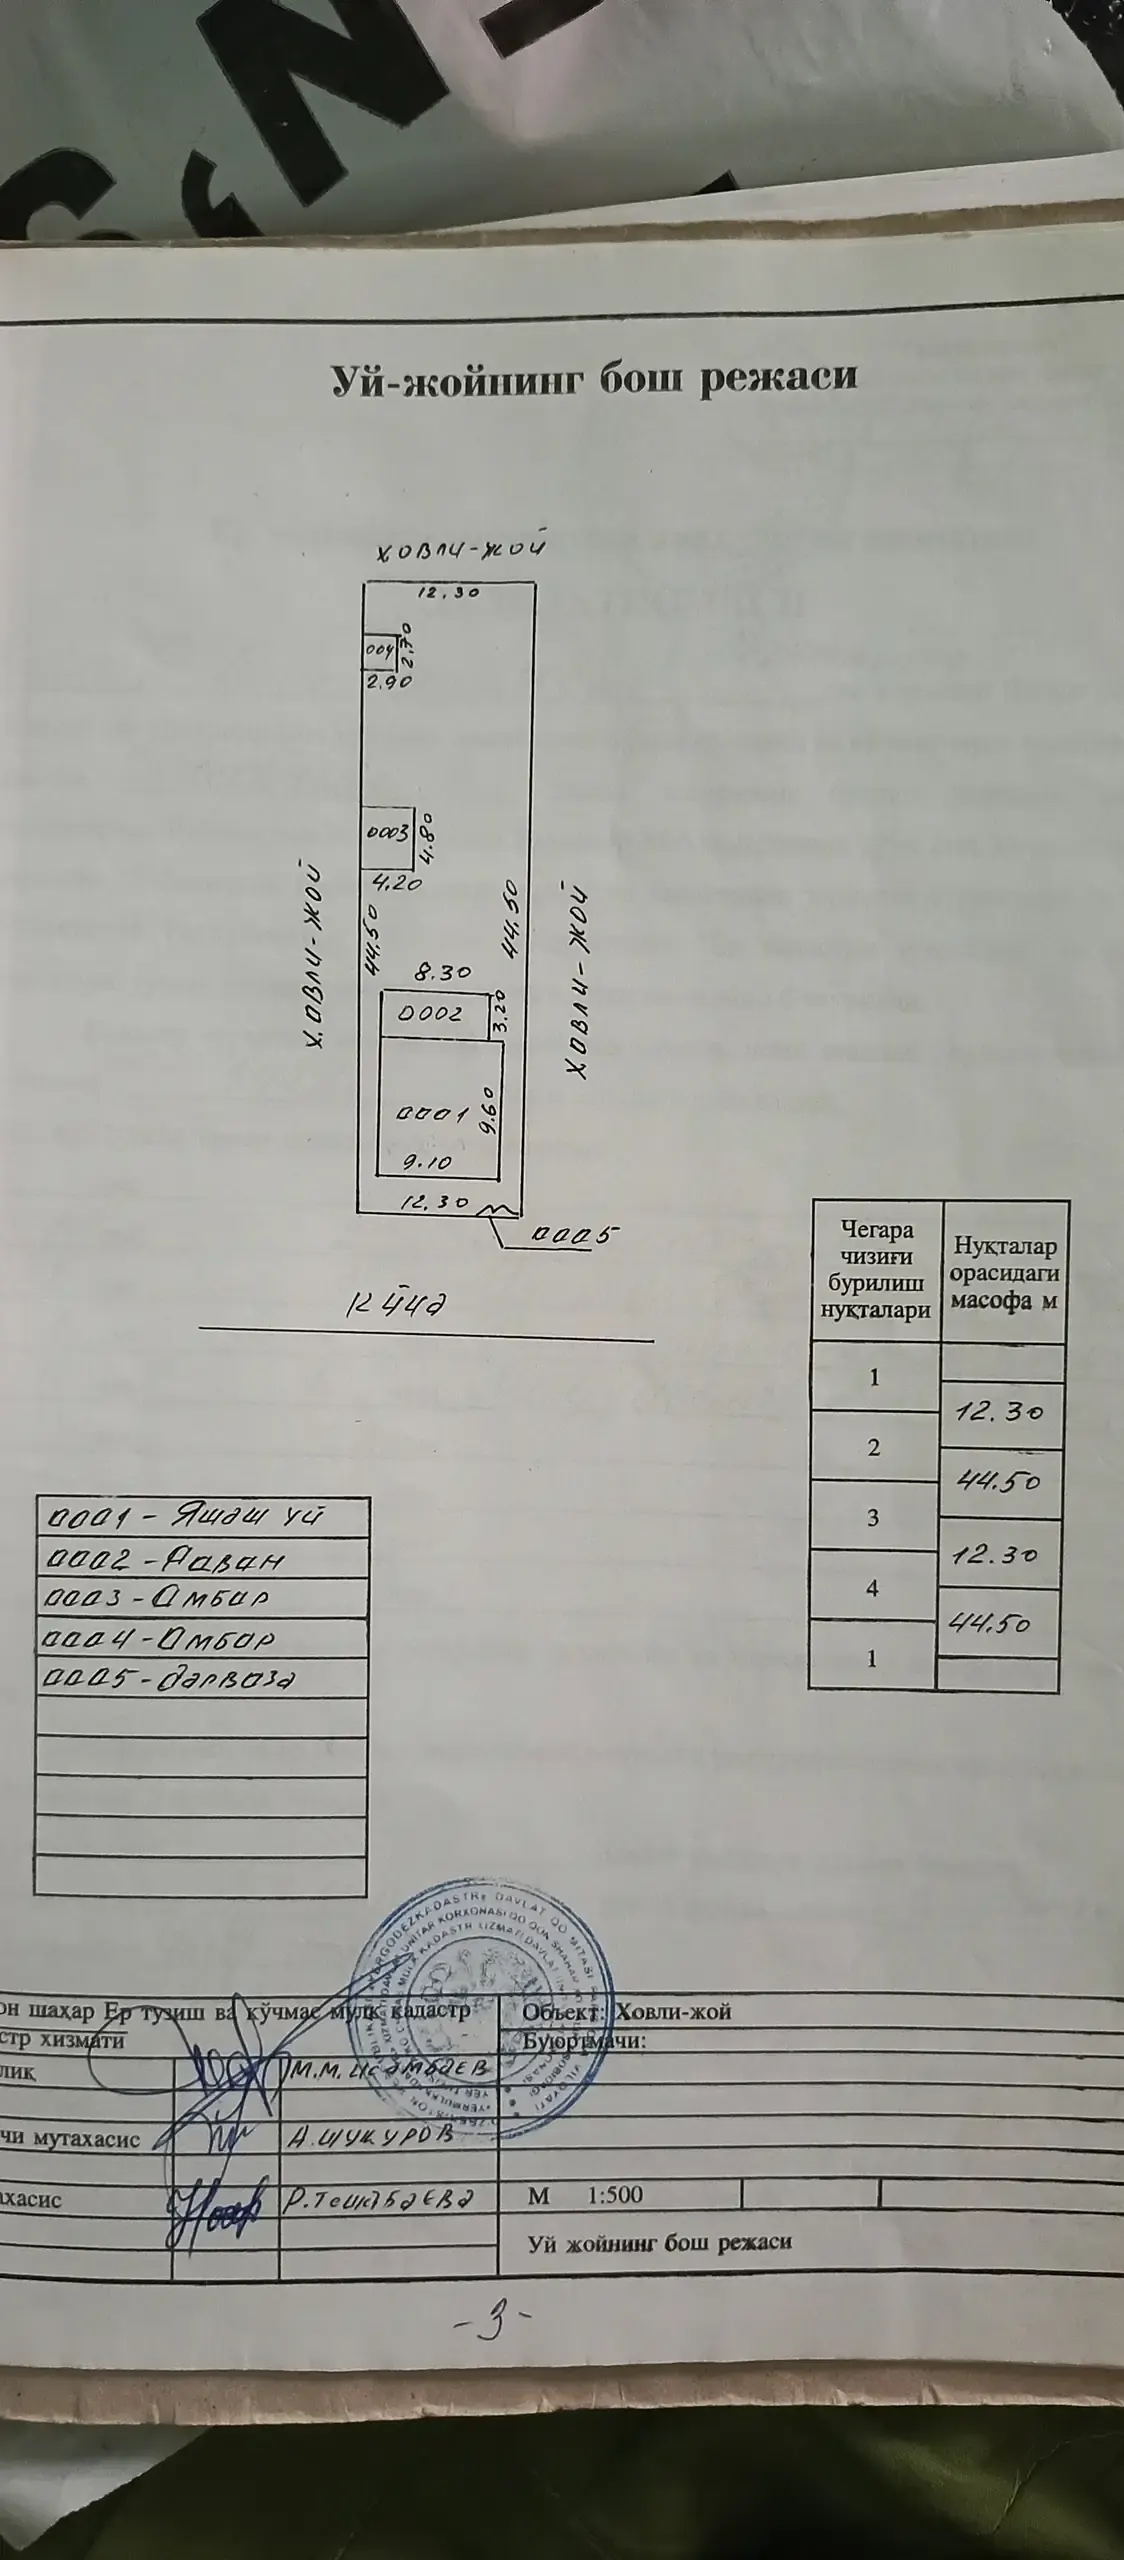 Уй-жойнинг бош режаси
ХОВЛИ-ЖОЙ
12.30
004
2.70
2.90
0003
4.80
4.20
ХОВЛИ-ЖОЙ
44.50
44.50
ХОВЛИ-ЖОЙ
8.30
0002
3.20
0001
9.60
9.10
12.30
0005
КЎЧА
Чегара чизиғи бурилиш нуқталари
Нуқталар орасидаги масофа м
1
12.30
2
44.50
3
12.30
4
44.50
1
0001 - Яшаш уй
0002 - Айван
0003 - Омбор
0004 - Омбор
0005 - дарвоза
он шаҳар Ер тузиш ва кўчмас мулк кадастр
стр хизмати
Объект: Ховли-жой
Буюртмачи:
лиқ
М.М. Исамбаев
чи мутахасис
А. Шукуров
ахасис
Р. Тешабаева
М 1:500
Уй жойнинг бош режаси
-3-